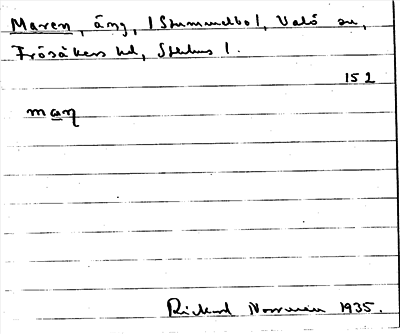 Maren, äng, 1 Stummelbo 1, Valö sn,
Frösåkers hd, Sthlms l.
152
maŋ
Rickard Norrman 1935.